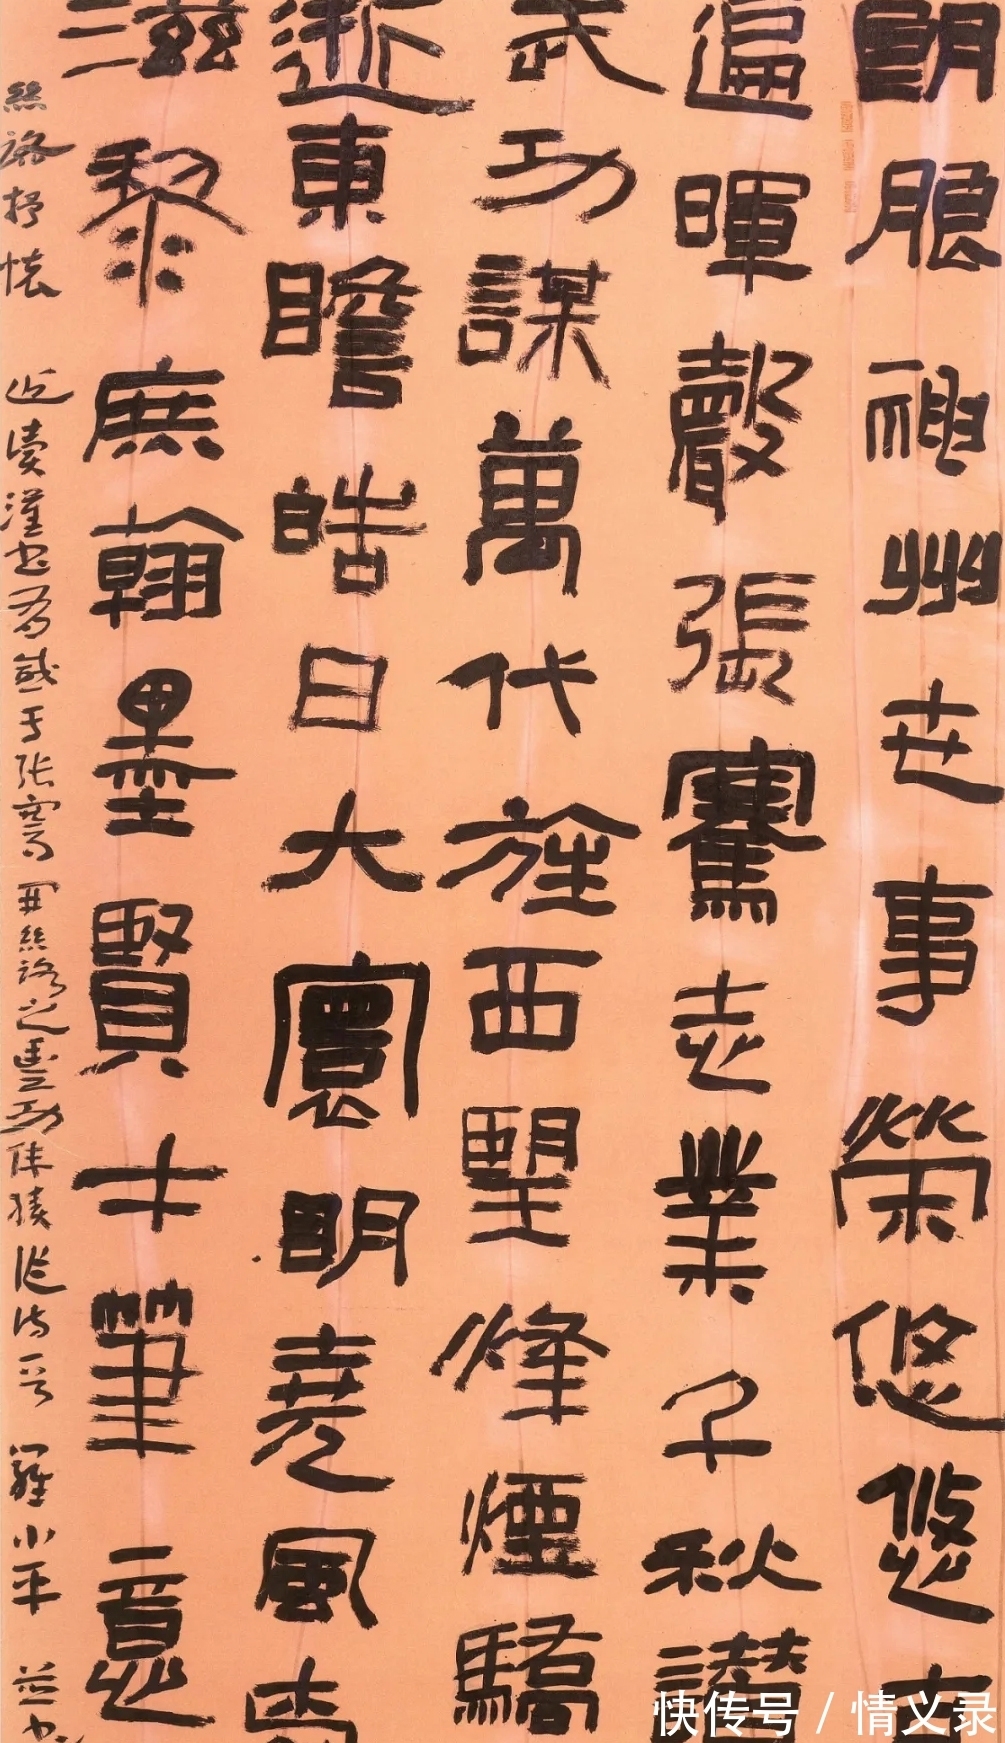 朗朗神州世事榮悠悠古
遍暉聲張騫志業千秋讚
武功謀萬代旌西望烽煙驕
逝東瞻皓日大寰明堯風
滋黎庶翰墨賢才筆意
絲路抒懷 近读漢书有感于张騫開絲路之豐功伟绩作诗一首 羅小平 並书
快传号/情义录